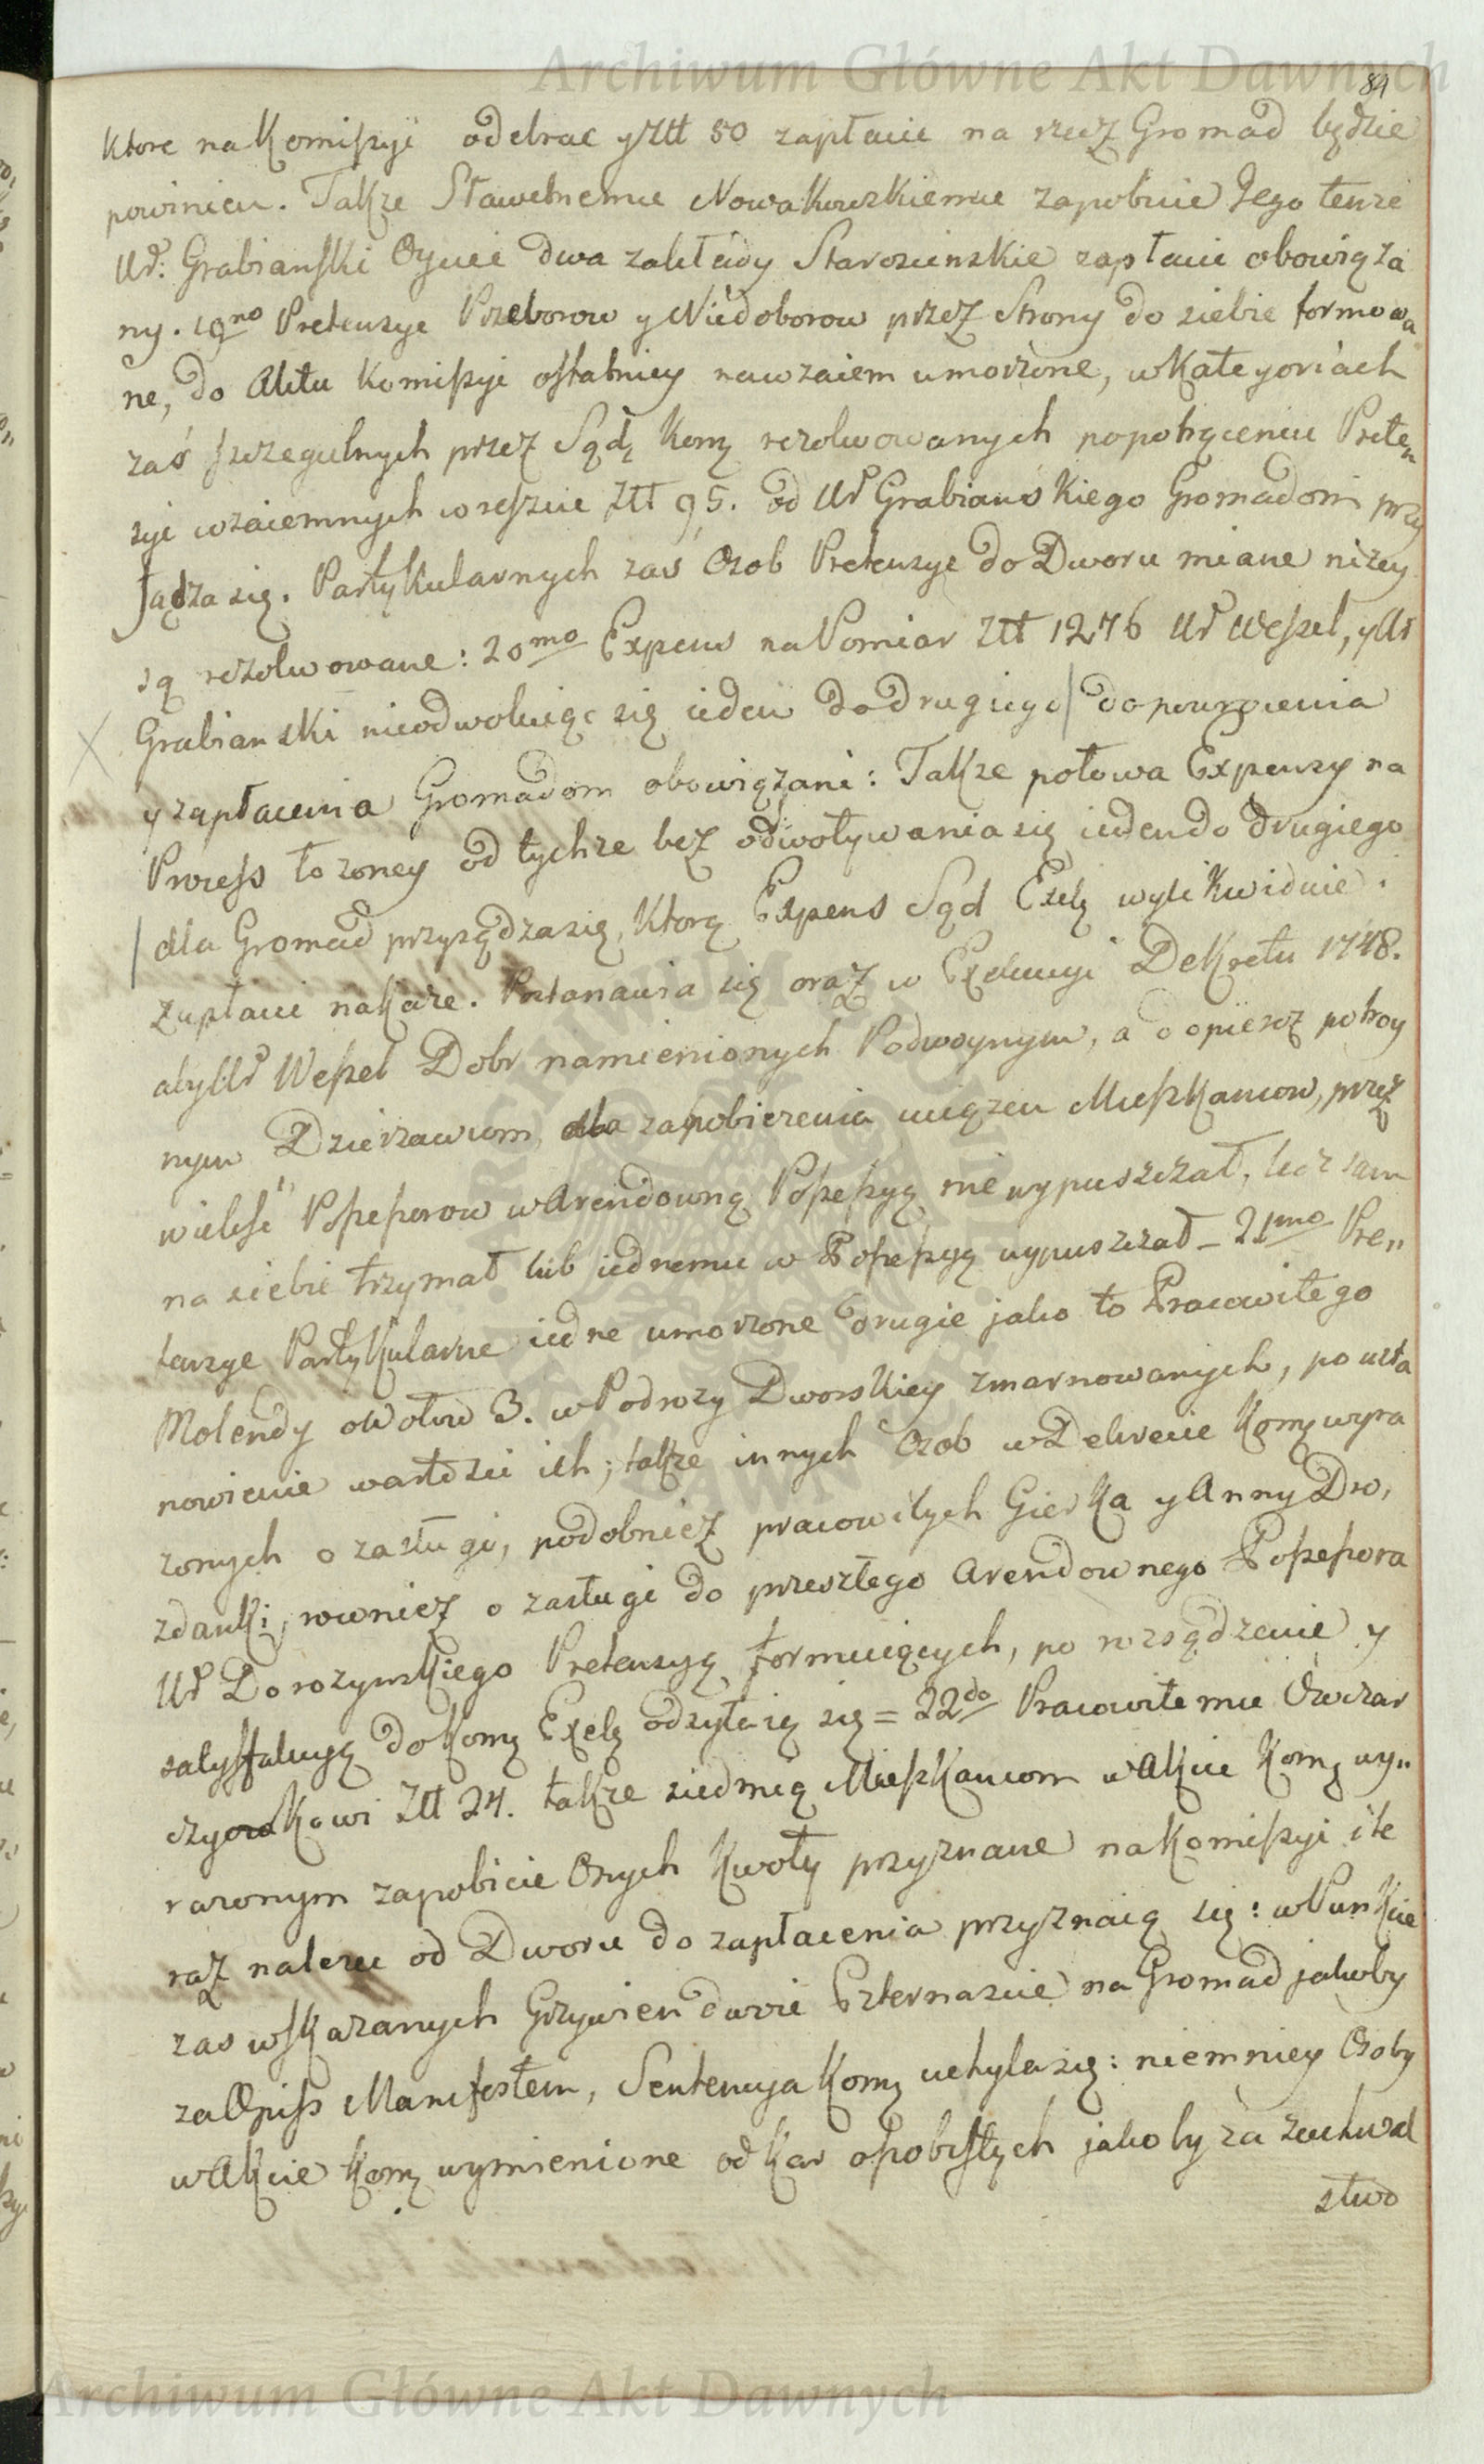 Archiwum Główne Akt Dawnych
84
ktore na Komissyi odebrac y Złł 50 zapłacic na rzecz Gromad będzie
powinien. Takze Sławetnemu Nowakowskiemu za pobicie Jego tenze
Ur: Grabianski Oycu dwa zakłady Staroscinskie zapłacic obowiąza
ny. 19no Pretensye Przeborow y Niedoborow przez Strony do siebie formowa
ne, do Aktu Komissyi ostatniey nawzaiem umorzone, w Kategoriach
zaś szczegulnych przez Sądę Komą rezolwowanych po potrąceniu Preten
syi wzaiemnych w reszcie Złł 95. od Ur Grabiańskiego Gromadom przy
sądza się. Partykularnych zaś Osob Pretensye do Dworu miane niżey
są rezolwowane: 20mo Expens na Pomiar Złł 1276 Ur Wessel, y Ur
Grabianski nieodwołuiąc się ieden do drugiego do powrocenia
y zapłacenia Gromadom obowiązani: Takze połowa Expensy na
Process łozoney od tychze bez odwoływania się ieden do drugiego
dla Gromad przysądza się, Ktorą Expens Sąd Exelą wylikwiduie i
zapłacic nakaze. Postanawia się oraz w Exekucyi Dekretu 1748.
aby Ur Wessel Dobr namienionych Podwoynym, a dopierosz potroy
nym Dzierzawcom, dla zapobiezenia uciązen Mieszkancow, przez
wielosć Possessorow w Arendowną Possessyą nie wypuszczał, lecz sam
na siebie trzymał lub iednemu w Possessyą wypuszczał – 21mo Pre„
tensye Partykularne iedne umorzone drugie jako to Pracowitego
Molendy o Wołow 3. w Podrozy Dworskiey zmarnowanych, po usta
nowienie wartosci ich; takze innych Osob w Dekrecie Komą wyra
zonych o zasługi, podobniez pracowitych Gierka y Anny Dro,
zdanki, rowniez o zasługi do przeszłego Arendownego Possessora
Ur Dorozynskiego Pretensyą formuiących, po rozsądzenie y
satysfakcyą do Komą Exelą odsyłaią się = 22do Pracowitemu Owczar
czykowi Złł 24. takze siedmią Mieszkancom w Akcie Komą wy„
razonym za pobicie Onych kwoty przyznane na Komissyi ile
raz nalezu od Dworu do zapłacenia przyznaią się: w Punkcie
zas wskazanych Grzywien dwie Czternascie na Gromad jakoby
za Opiss Manifestem, Sentencya Komą uchyla się: niemniey Osoby
w Akcie Komą wymienione od Kar osobistych jakoby za zuchwal
stwo
Archiwum Główne Akt Dawnych